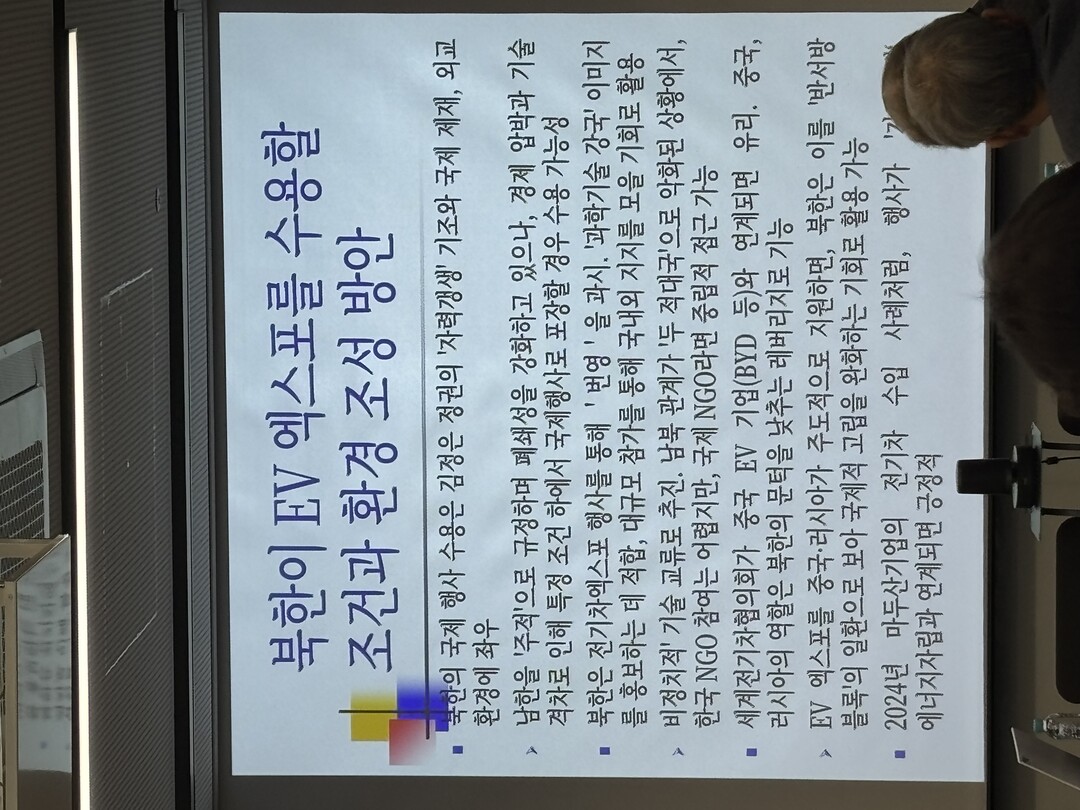 북한이 EV 엑스포를 수용할
조건과 환경 조성 방안
북한의 국제 행사 수용은 김정은 정권의 '자력갱생' 기조와 국제 제재, 외교
환경에 좌우
남한을 '주적'으로 규정하며 폐쇄성을 강화하고 있으나, 경제 압박과 기술
격차로 인해 특정 조건 하에서 국제행사로 포장할 경우 수용 가능성
북한은 전기차엑스포 행사를 통해 ' 번영 ' 을 과시. '과학기술 강국' 이미지
를 홍보하는 데 적합, 대규모 참가를 통해 국내외 지지를 모을 기회로 활용
비정치적' 기술 교류로 추진. 남북 관계가 '두 적대국'으로 악화된 상황에서,
한국 NGO 참여는 어렵지만, 국제 NGO라면 중립적 접근 가능
세계전기차협의회가 중국 EV 기업(BYD 등)와 연계되면 유리. 중국,
러시아의 역할은 북한의 문턱을 낮추는 레버리지로 기능
EV 엑스포를 중국·러시아가 주도적으로 지원하면, 북한은 이를 '반서방
블록'의 일환으로 보아 국제적 고립을 완화하는 기회로 활용 가능
2024년 마두산기업의 전기차 수입 사례처럼, 행사가
에너지자립과 연계되면 긍정적